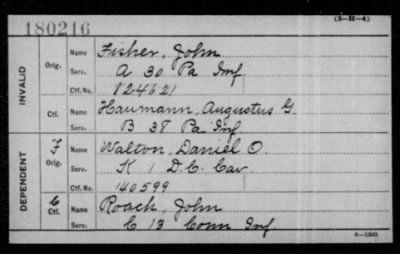 (3-H-4)
180216
INVALID
Orig. Name Fisher, John
Serv. A 30 Pa Inf
Ctf. No. 824621
Ctf. Name Haumann, Augustus G.
Serv. B 38 Pa Inf.
DEPENDENT
F Orig. Name Walton, Daniel O.
Serv. K 1 D.C. Cav.
Ctf. No. 140599
C Ctf. Name Roach, John
Serv. C 13 Conn Inf.